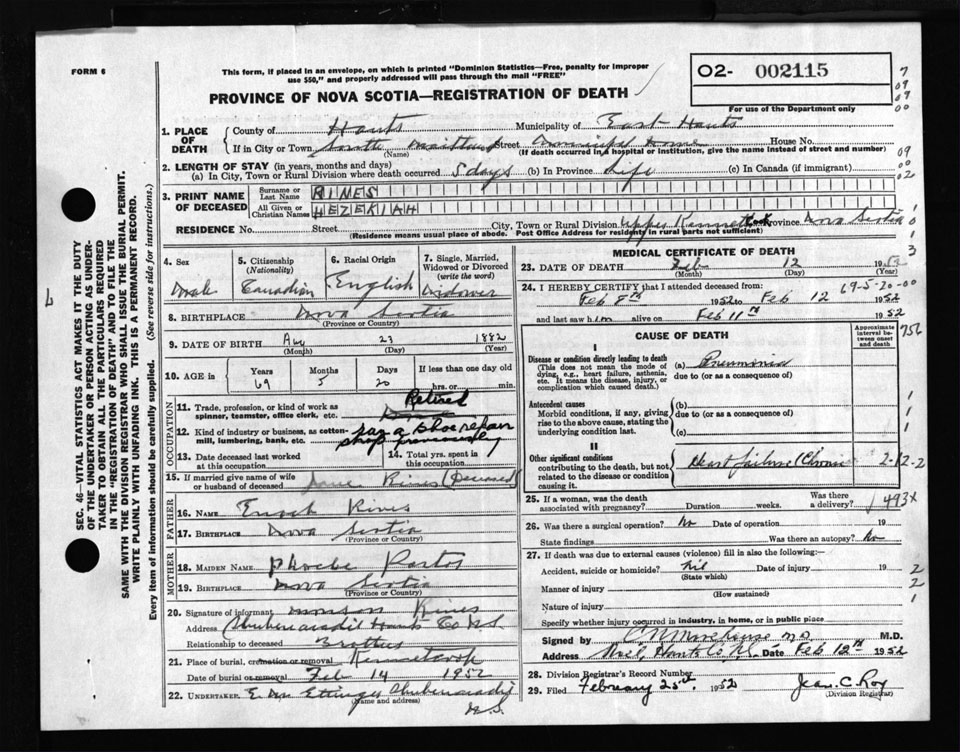 FORM 6
This form, if placed in an envelope, on which is printed "Dominion Statistics—Free, penalty for improper
use $50," and properly addressed will pass through the mail "FREE"
PROVINCE OF NOVA SCOTIA—REGISTRATION OF DEATH
02- 002115
For use of the Department only
1. PLACE OF DEATH
County of Hants Municipality of East Hants
If in City or Town South Maitland Street Home House No.
(Name) (If death occurred in a hospital or institution, give the name instead of street and number)
2. LENGTH OF STAY (in years, months and days)
(a) In City, Town or Rural Division where death occurred 5 days (b) In Province Life (c) In Canada (if immigrant)
3. PRINT NAME OF DECEASED
Surname or Last Name RINES
All Given or Christian Names HEZEKIAH
RESIDENCE No. Street City, Town or Rural Division Upper Kennetcook Province Nova Scotia
(Residence means usual place of abode. Post Office Address for residents in rural parts not sufficient)
4. Sex Male
5. Citizenship (Nationality) Canadian
6. Racial Origin English
7. Single, Married, Widowed or Divorced (write the word) Widower
8. BIRTHPLACE Nova Scotia
(Province or Country)
9. DATE OF BIRTH Aug 23 1882
(Month) (Day) (Year)
10. AGE in Years Months Days If less than one day old
69 5 20 hrs. or min.
OCCUPATION
11. Trade, profession, or kind of work as spinner, teamster, office clerk, etc. Retired
12. Kind of industry or business, as cotton-mill, lumbering, bank, etc. ran a shoe repair shop previously
13. Date deceased last worked at this occupation
14. Total yrs. spent in this occupation
15. If married give name of wife or husband of deceased Rines (Deceased)
FATHER
16. NAME Enoch Rines
17. BIRTHPLACE Nova Scotia
(Province or Country)
MOTHER
18. MAIDEN NAME Phoebe
19. BIRTHPLACE Nova Scotia
(Province or Country)
20. Signature of informant Rines
Address Shubenacadie Hants Co N.S.
Relationship to deceased Brother
21. Place of burial, cremation or removal Kennetcook
Date of burial or removal Feb 14 1952
22. UNDERTAKER E. Ettinger Shubenacadie
(Name and address) N.S.
MEDICAL CERTIFICATE OF DEATH
23. DATE OF DEATH Feb 12 1952
(Month) (Day) (Year)
24. I HEREBY CERTIFY that I attended deceased from: 69-5-20-00
Feb 8th 1952 to Feb 12 1952
and last saw him alive on Feb 11th 1952
CAUSE OF DEATH
Approximate interval between onset and death
756
I
Disease or condition directly leading to death
(This does not mean the mode of dying, e.g., heart failure, asthenia, etc. It means the disease, injury, or complication which caused death.)
(a) Pneumonia
due to (or as a consequence of)
Antecedent causes
Morbid conditions, if any, giving rise to the above cause, stating the underlying condition last.
(b)
due to (or as a consequence of)
(c)
II
Other significant conditions
contributing to the death, but not related to the disease or condition causing it
Heart failure (Chronic
2-12-2
25. If a woman, was the death associated with pregnancy? Duration weeks. Was there a delivery? 493x
26. Was there a surgical operation? No Date of operation 19
State findings Was there an autopsy? No
27. If death was due to external causes (violence) fill in also the following:
Accident, suicide or homicide? Nil Date of injury 19
(State which)
Manner of injury
(How sustained)
Nature of injury
Specify whether injury occurred in industry, in home, or in public place
Signed by C N Morehouse M.D. M.D.
Address Noel, Hants Co N.S. Date Feb 12th 1952
28. Division Registrar's Record Number
29. Filed February 25th 1952 Jean C. Roy
(Division Registrar)
SEC. 46—VITAL STATISTICS ACT MAKES IT THE DUTY
OF THE UNDERTAKER OR PERSON ACTING AS UNDER-
TAKER TO OBTAIN ALL THE PARTICULARS REQUIRED
IN THE "REGISTRATION OF DEATH" AND TO FILE THE
SAME WITH THE DIVISION REGISTRAR WHO SHALL ISSUE THE BURIAL PERMIT.
WRITE PLAINLY WITH UNFADING INK. THIS IS A PERMANENT RECORD.
Every item of information should be carefully supplied. (See reverse side for instructions.)